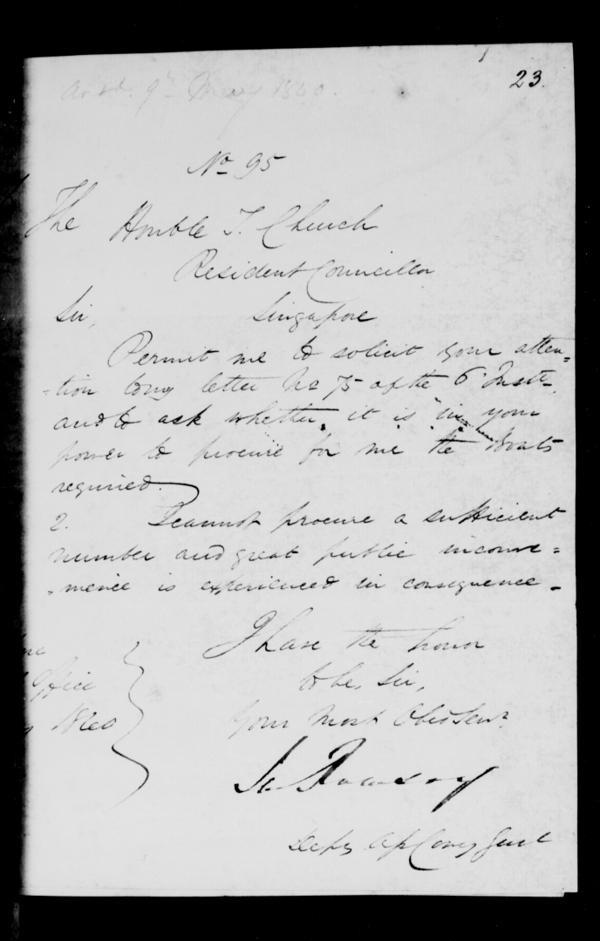 23.
Ansd. 9th May 1840.
No 95
The Honble T. Church
Resident Councillor
Sir, Singapore
Permit me to solicit your atten=
=tion to my letter No 75 of the 6 Inst.
and to ask whether it is in your
power to procure for me the Boats
required.
2. I cannot procure a sufficient
number and great public inconve=
=nience is experienced in consequence.
I have the honor
Office to be, Sir,
1840 Your Most Obed Servt
Ramsay
Depy Ast Comy Genl